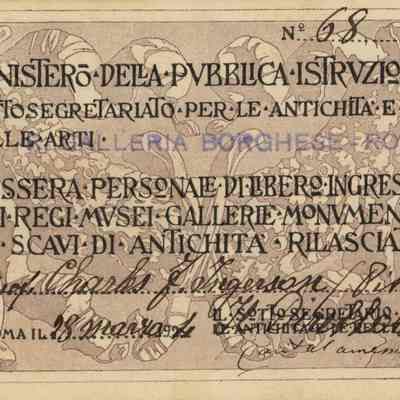 Nº 68
NISTERO·DELLA·PVBBLICA·ISTRVZIO
TTOSEGRETARIATO·PER·LE·ANTICHITA·E
LLE·ARTI·
LLERIA BORGHESE-RO
SSERA·PERSONALE·DI·LIBERO·INGRES
I·REGI·MVSEI·GALLERIE·MONVMEN
SCAVI·DI·ANTICHITA·RILASCIA
Charles J. Ingerson
OMA IL 28 marzo 192
IL SOTTO SEGRETARIO